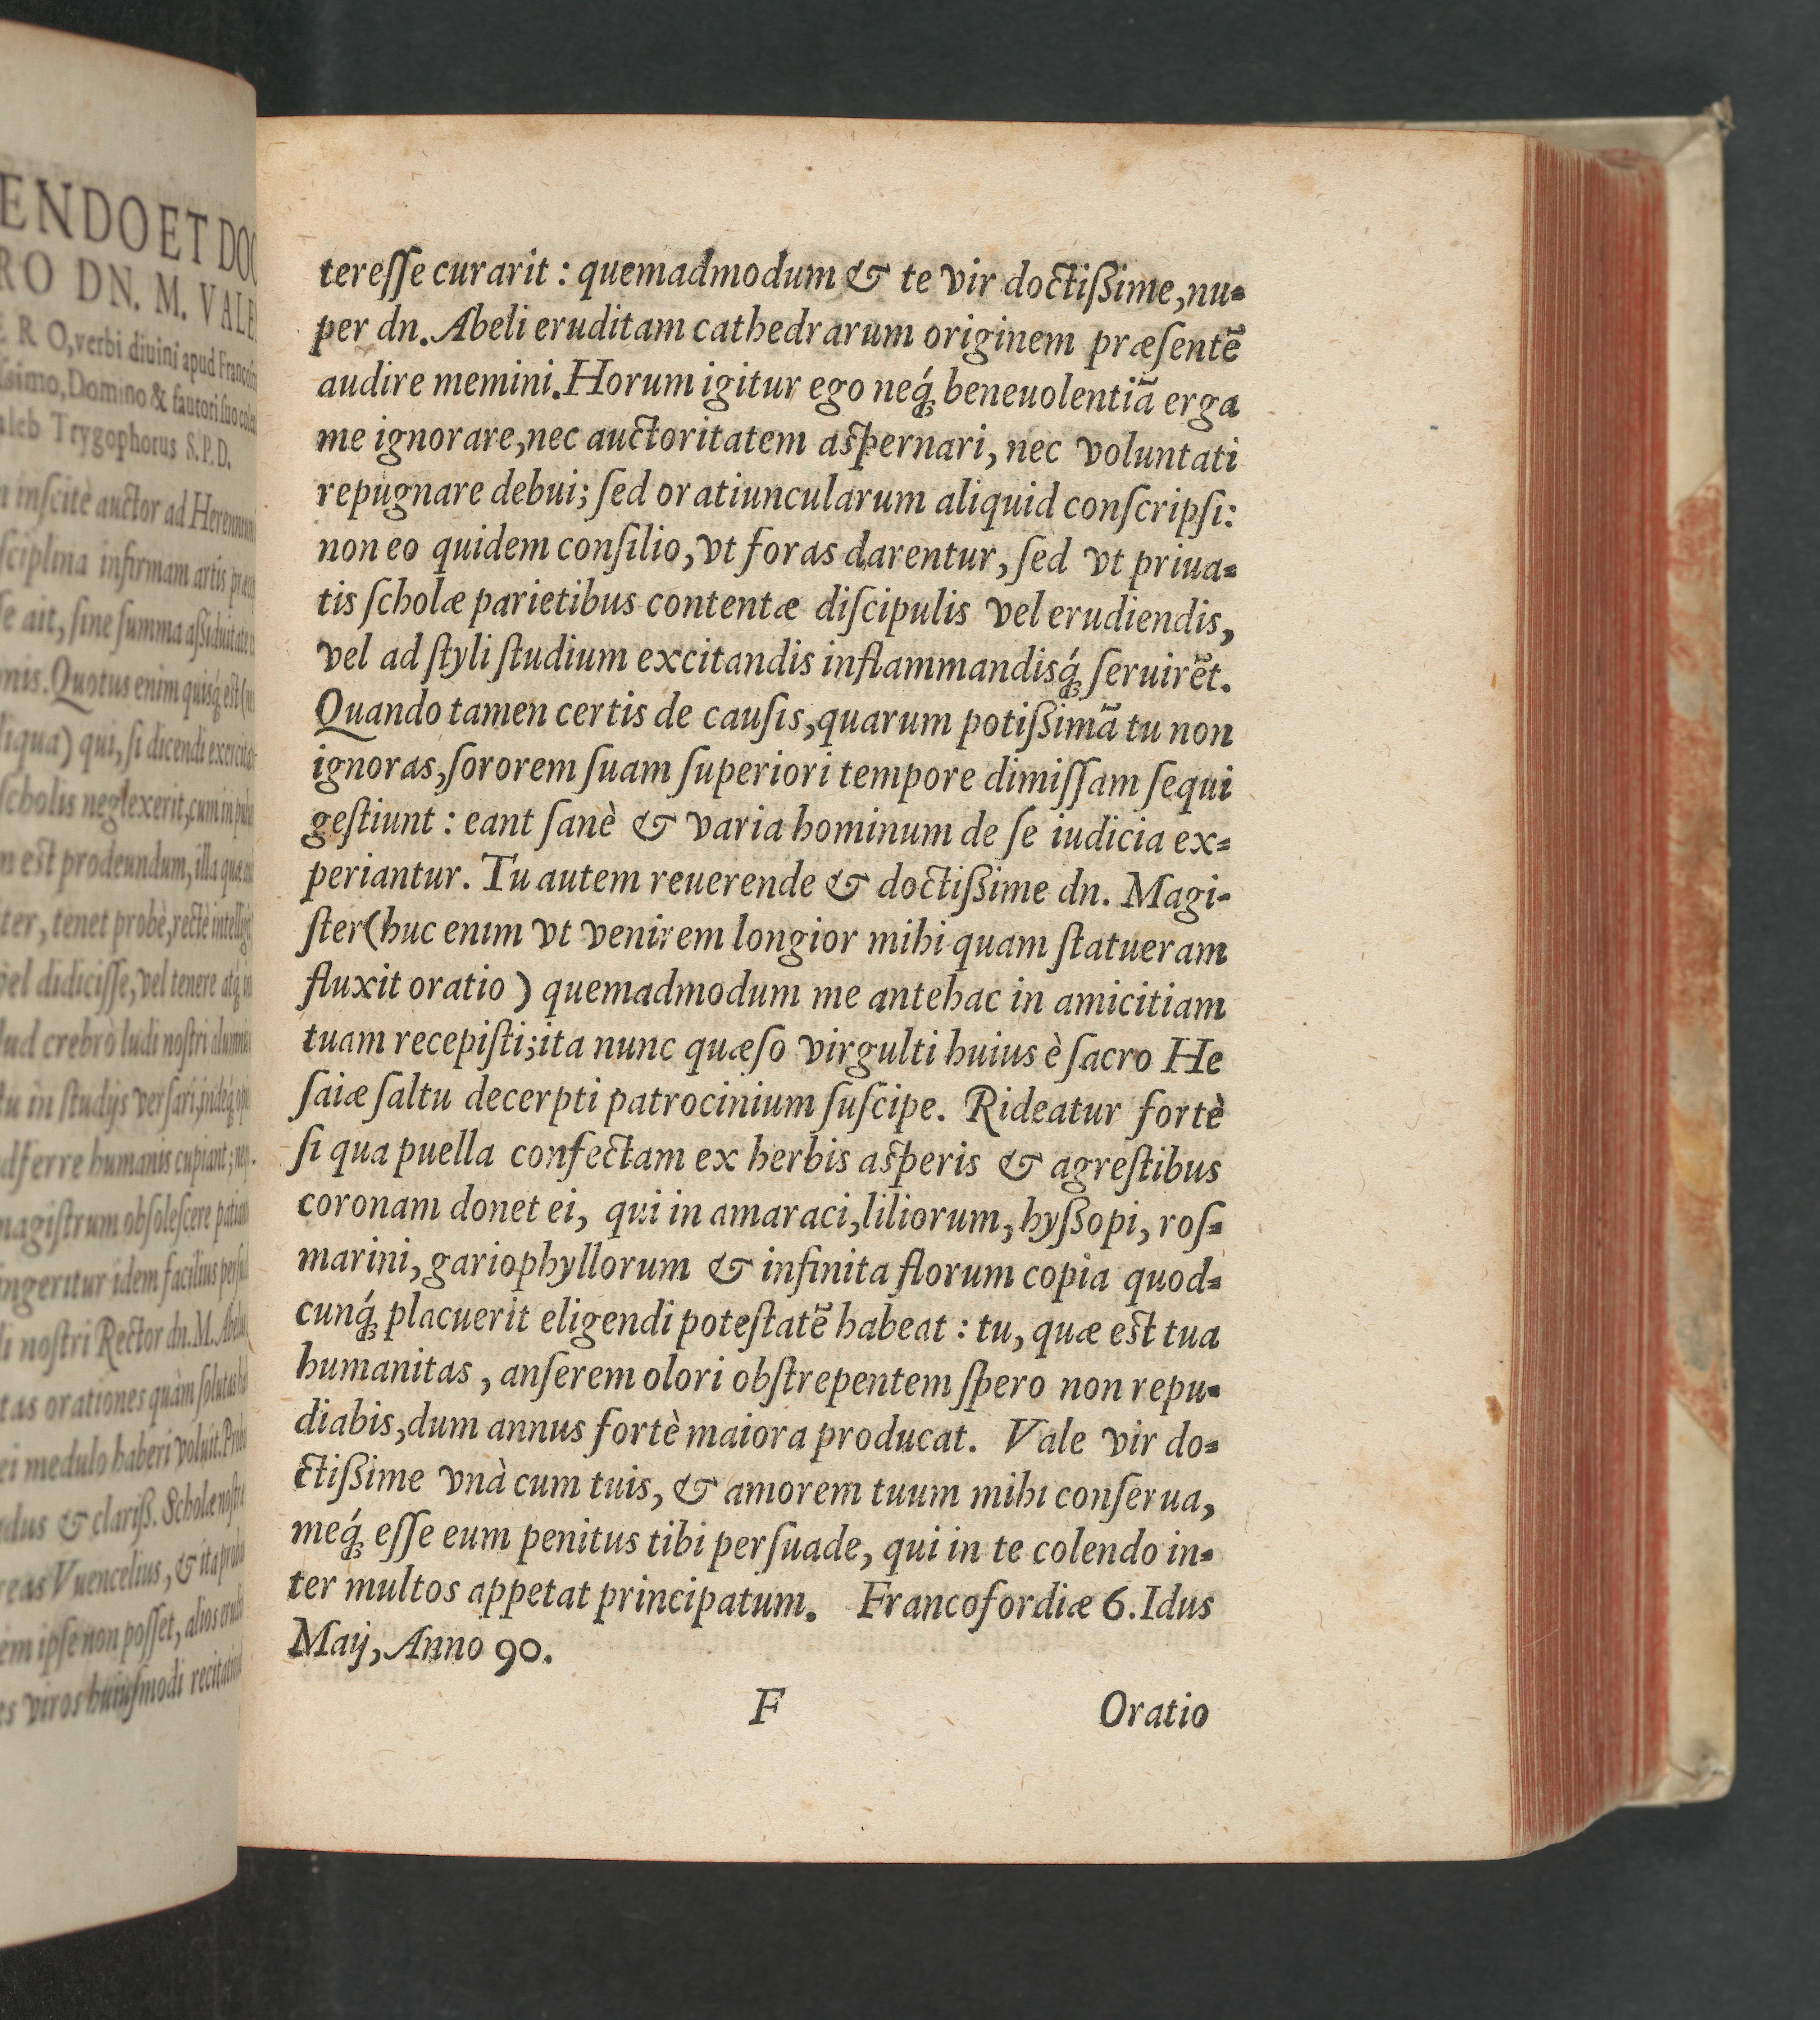 ENDO ET DOC
RO DN. M. VALE
E R O, verbi diuini apud Francof
ſsimo, Domino & fautori ſuo cole
aleb Trygophorus S.P.D.
inſcitè auctor ad Herenniu
ſciplina infirmam artis præ
ſe ait, ſine ſumma aſsiduitate
nis. Quotus enim quiſq́ eſt (
liqua) qui, ſi dicendi exercita
ſcholis neglexerit, cum in pub
eſt prodeundum, illa quæ
ter, tenet probè, rectè intellig
vel didiciſſe, vel tenere atq́
lud crebrò ludi noſtri alumni
tu in ſtudijs verſari, indeq́
dferre humanis cupiant; neq
magiſtrum obſoleſcere
ingeritur idem facilius
noſtri Rector dn. M. Abelus
tas orationes quàm ſolutas
ei medulo haberi voluit. Prob
dus & clariß. Scholæ noſtræ
reas Vuencelius, & ita prob
em ipſe non poſſet, alios
es viros huiuſmodi recitati
tereſſe curarit : quemadmodum & te vir doctißime, nu-
per dn. Abeli eruditam cathedrarum originem præſentē
audire memini. Horum igitur ego neq́; beneuolentiā erga
me ignorare, nec auctoritatem aſpernari, nec voluntati
repugnare debui; ſed oratiuncularum aliquid conſcripſi:
non eo quidem conſilio, vt foras darentur, ſed vt priua-
tis ſcholæ parietibus contentæ diſcipulis vel erudiendis,
vel ad ſtyli ſtudium excitandis inflammandisq́; ſeruirēt.
Quando tamen certis de cauſis, quarum potißimā tu non
ignoras, ſororem ſuam ſuperiori tempore dimiſſam ſequi
geſtiunt : eant ſanè & varia hominum de ſe iudicia ex-
periantur. Tu autem reuerende & doctißime dn. Magi-
ſter (huc enim vt venirem longior mihi quam ſtatueram
fluxit oratio) quemadmodum me antehac in amicitiam
tuam recepiſti; ita nunc quæſo virgulti huius è ſacro He
ſaiæ ſaltu decerpti patrocinium ſuſcipe. Rideatur fortè
ſi qua puella confectam ex herbis aſperis & agreſtibus
coronam donet ei, qui in amaraci, liliorum, hyßopi, roſ-
marini, gariophyllorum & infinita florum copia quod-
cunq́; placuerit eligendi poteſtatē habeat : tu, quæ eſt tua
humanitas, anſerem olori obſtrepentem ſpero non repu-
diabis, dum annus fortè maiora producat. Vale vir do-
ctißime vnà cum tuis, & amorem tuum mihi conſerua,
meq́; eſſe eum penitus tibi perſuade, qui in te colendo in-
ter multos appetat principatum. Francofordiæ 6. Idus
Maij, Anno 90.
F Oratio